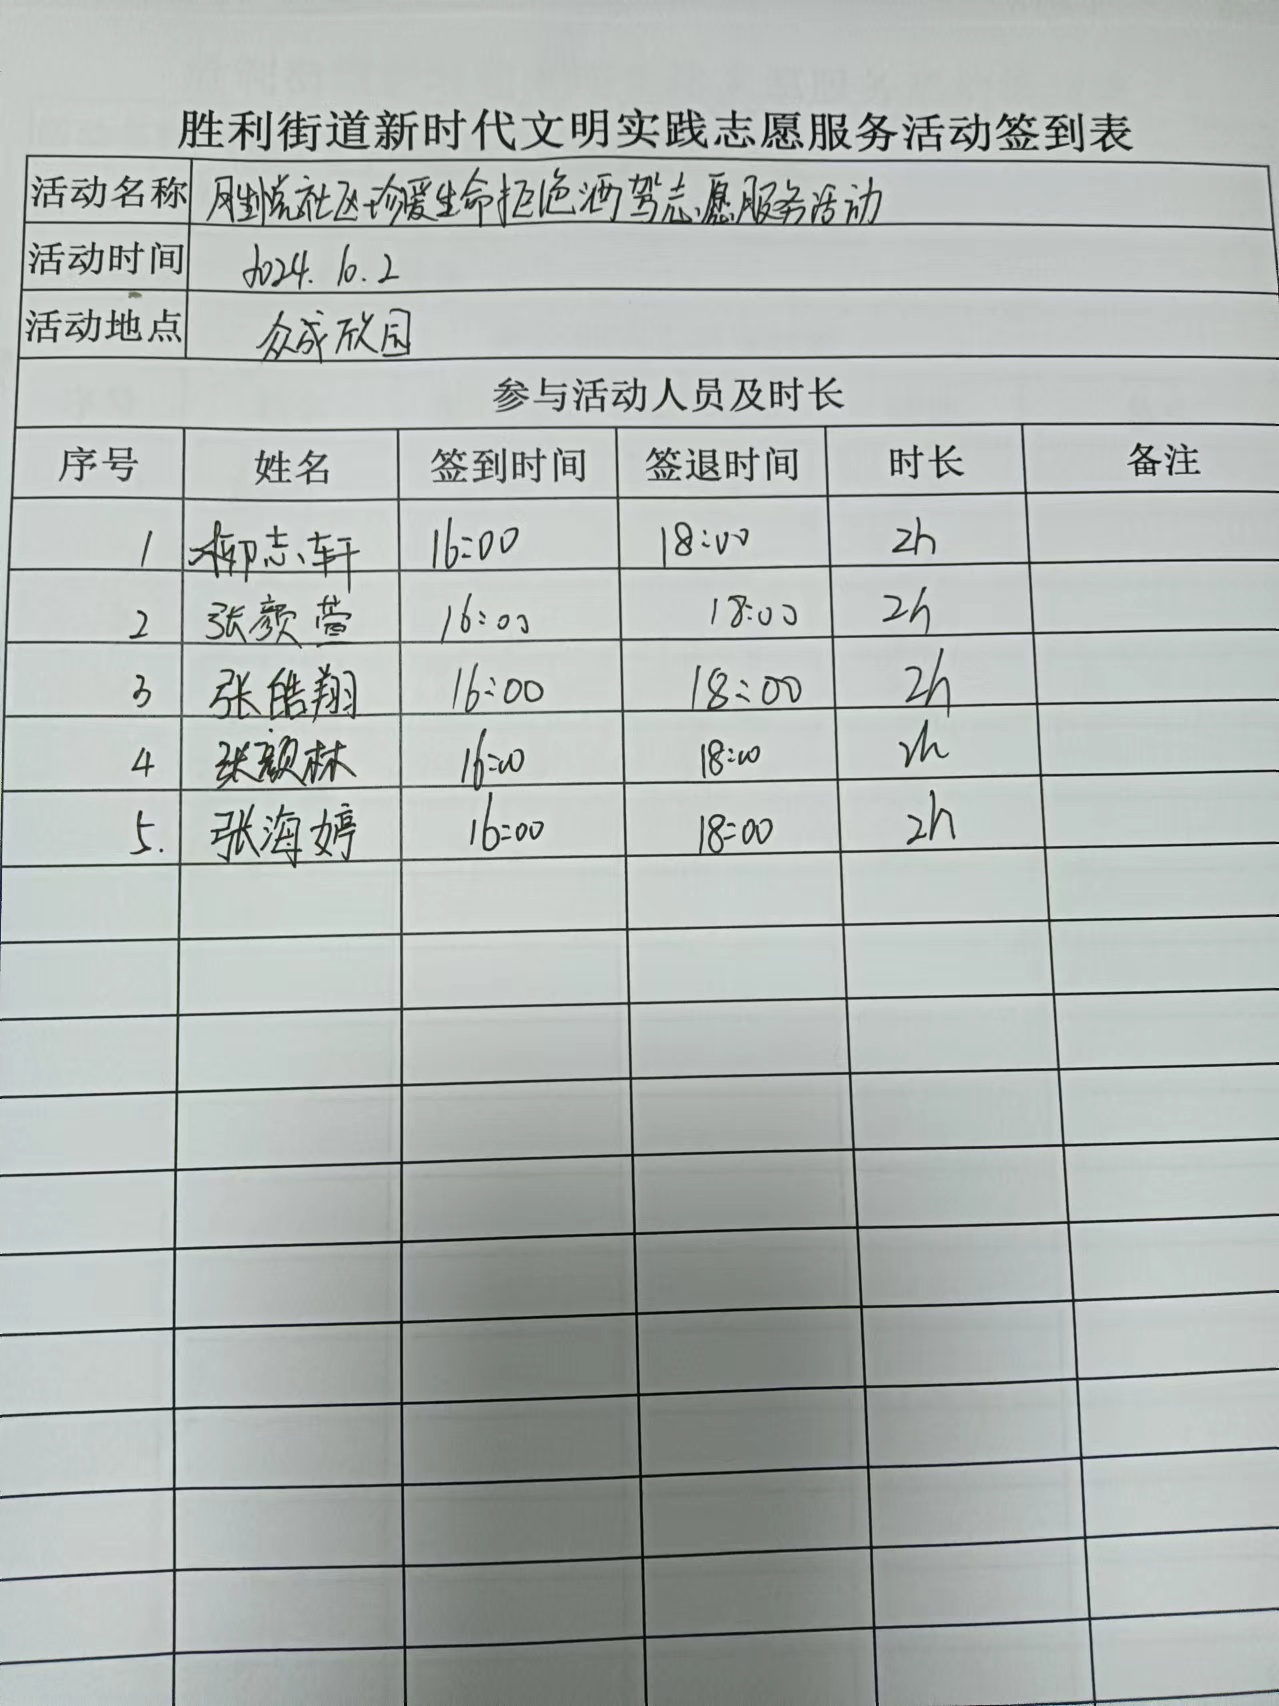 胜利街道新时代文明实践志愿服务活动签到表
活动名称 胜悦社区珍爱生命拒绝酒驾志愿服务活动
活动时间 2024.10.2
活动地点 众成欣园
参与活动人员及时长
序号 姓名 签到时间 签退时间 时长 备注
1 柳志轩 16:00 18:00 2h
2 张颜萱 16:00 18:00 2h
3 张皓翔 16:00 18:00 2h
4 张颜林 16:00 18:00 2h
5. 张海婷 16:00 18:00 2h